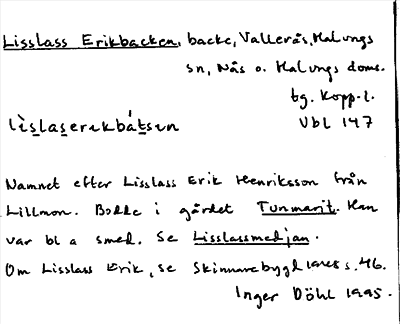 Lisslass Erikbacken, backe, Vallerås, Malungs
sn, Nås o. Malungs doms.
tg. Kopp. l.
Vbl 147
Namnet efter Lisslass Erik Henriksson från
Lillmon. Bodde i gårdet Tunmarit. Han
var bl a smed. Se Lisslassmedjan.
Om Lisslass Erik, se Skinnarebygd s. 46.
Inger Döhl 1995.